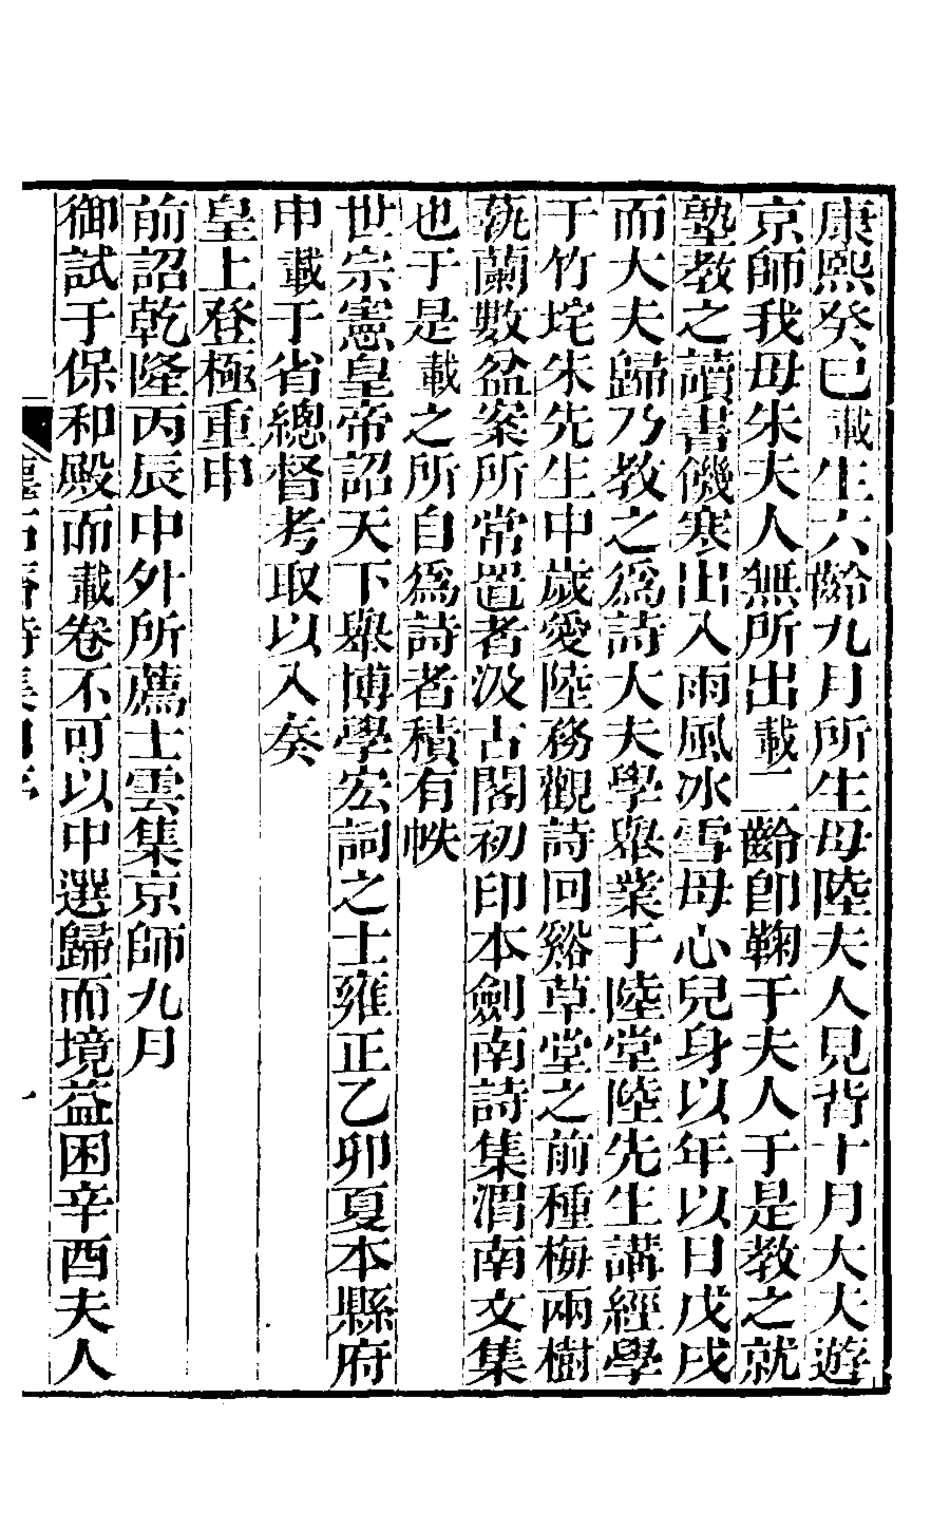 康熙癸巳載生六齡九月所生母陸夫人見背十月大夫遊
京師我母朱夫人無所出載二齡卽鞠于夫人于是教之就
塾教之讀書饑寒出入雨風冰雪母心兒身以年以日戊戌
而大夫歸乃教之爲詩大夫學舉業于陸堂陸先生講經學
于竹垞朱先生中歲愛陸務觀詩回谿草堂之前種梅兩樹
蓺蘭數盆案所常置者汲古閣初印本劍南詩集渭南文集
也于是載之所自爲詩者積有帙
世宗憲皇帝詔天下舉博學宏詞之士雍正乙卯夏本縣府
申載于省總督考取以入奏
皇上登極重申
前詔乾隆丙辰中外所薦士雲集京師九月
御試于保和殿而載卷不可以中選歸而境益困辛酉夫人